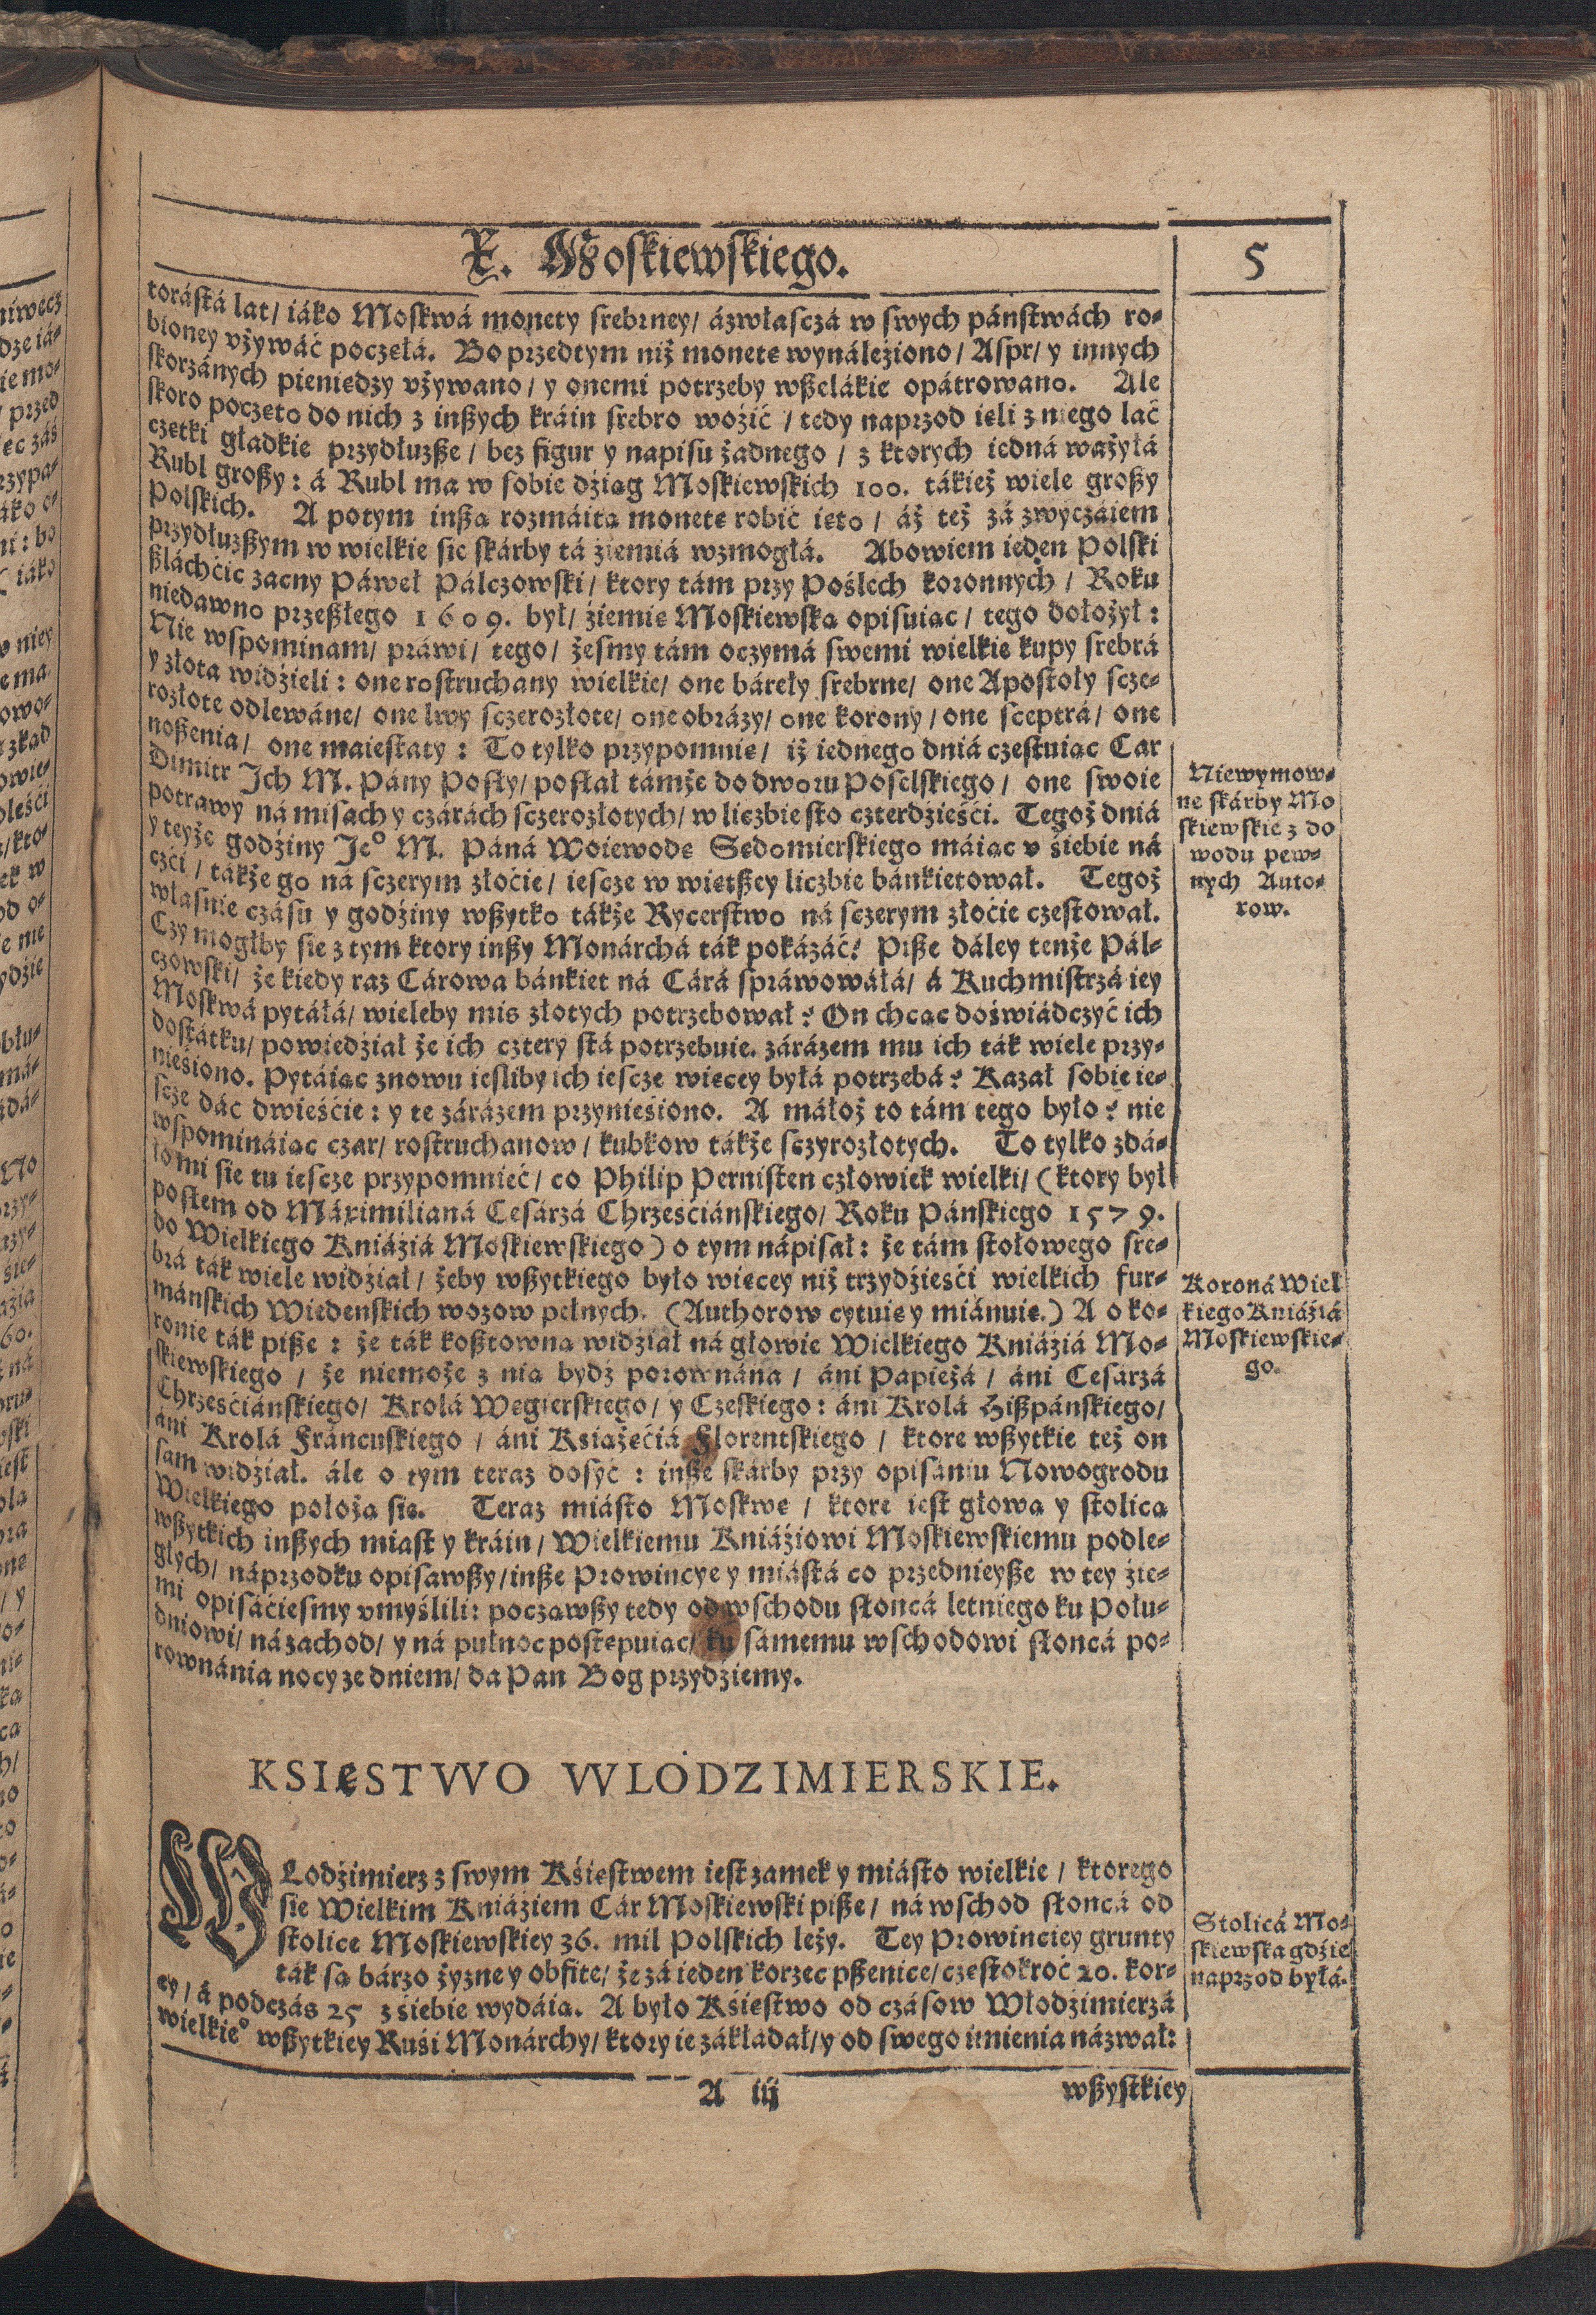 X. Moskiewskiego.
5
torástá lat/ iáko Moskwá monety srebrney/ ázwłasczá w swych páństwách ro-
bioney vżywáć poczęłá. Bo przedtym niż monetę wynáleźiono/ Aspr/ y innych
skorzánych pieniędzy vżywano/ y onemi potrzeby wßelákie opátrowano. Ale
skoro poczęto do nich z inßych kráin srebro woźić / tedy naprzod ięli z niego lać
czetki gładkie przydłuzße / bez figur y napisu żadnego / z ktorych iedná ważyłá
Rubl großy: á Rubl ma w sobie dźiąg Moskiewskich 100. tákież wiele großy
Polskich. A potym inßą rozmáitą monetę robić ięto / áż też zá zwyczáiem
przydłuzßym w wielkie się skárby tá źiemiá wzmogłá. Abowiem ieden Polski
ßláchćic zacny Páweł Pálczowski/ ktory tám przy Posłéch koronnych / Roku
niedawno przeßłego 1609. był/ źiemię Moskiewską opisuiąc/ tego dołożył:
Nie wspominam/ práwi/ tego/ żesmy tám oczymá swemi wielkie kupy srebrá
y złota widźieli: one rostruchany wielkie/ one báreły srebrne/ one Apostoły scze-
rozłote odlewáne/ one lwy sczerozłote/ one obrázy/ one korony/ one sceptrá/ one
noßenia/ one maiestaty: To tylko przypomnię/ iż iednego dniá częstuiąc Car
Dimitr Ich M. Pány Posły/ posłał támże do dworu Poselskiego/ one swoie
potrawy ná misach y czárách sczerozłotych/ w liczbie sto czterdźieśći. Tegoż dniá
y teyże godźiny Je° M. Páná Woiewodę Sędomierskiego máiąc v śiebie ná
czći / tákże go ná sczerym złoćie/ iescze w więtßey liczbie bánkietował. Tegoż
własnie czásu y godźiny wßytko tákże Rycerstwo ná sczerym złoćie częstował.
Czy mogłby się z tym ktory inßy Monárchá ták pokázáć? Piße dáley tenże Pál-
czowski/ że kiedy raz Cárowa bánkiet ná Cárá spráwowáłá/ á Kuchmistrzá iey
Moskwá pytáłá/ wieleby mis złotych potrzebował? On chcąc doświádczyć ich
dostátku/ powiedźiał że ich cztery stá potrzebuie. zárázem mu ich ták wiele przy-
nieśiono. Pytáiąc znowu iesliby ich iescze więcey byłá potrzebá? Kazał sobie ie-
scze dáć dwieśćie: y te zárázem przynieśiono. A máłoż to tám tego było? nie
wspomináiąc czar/ rostruchanow/ kubkow tákże sczyrozłotych. To tylko zdá-
ło mi się tu iescze przypomnieć/ co Philip Pernisten człowiek wielki/ (ktory był
posłem od Máximilianá Cesárzá Chrześćiáńskiego/ Roku Páńskiego 1579.
do Wielkiego Kniáźiá Moskiewskiego) o tym nápisał: że tám stołowego sre-
brá ták wiele widźiał/ żeby wßytkiego było więcey niż trzydźieśći wielkich fur-
máńskich Wiedeńskich wozow pełnych. (Authorow cytuie y miánuie.) A o ko-
ronie ták piße: że ták koßtowną widźiał ná głowie Wielkiego Kniáźiá Mo-
skiewskiego / że niemoże z nią bydź porownána / áni Papieżá / áni Cesárzá
Chrześćiáńskiego/ Krolá Węgierskiego/ y Czeskiego: áni Krolá Hißpáńskiego/
áni Krolá Fráncuskiego / áni Książęćiá Florentskiego / ktore wßytkie też on
sam widźiał. ále o tym teraz dosyć: inße skárby przy opisániu Nowogrodu
Wielkiego położą się. Teraz miásto Moskwę / ktore iest głową y stolicą
wßytkich inßych miast y kráin/ Wielkiemu Kniáźiowi Moskiewskiemu podle-
głych/ náprzodku opisawßy/ inße Prowincye y miástá co przednieyße w tey źie-
mi opisáćiesmy vmyślili: począwßy tedy od wschodu słońcá letniego ku Połu-
dniowi/ ná zachod/ y ná pułnoc postępuiąc/ ku samemu wschodowi słońcá po-
rownánia nocy ze dniem/ da Pan Bog przydźiemy.
Niewymow-
ne skárby Mo
skiewskie z do
wodu pew-
nych Auto-
row.
Koroná Wiel
kiego Kniáźiá
Moskiewskie-
go.
KSIęSTWO WLODZIMIERSKIE.
WLodźimierz z swym Kśięstwem iest zamek y miásto wielkie / ktorego
się Wielkim Kniáźiem Cár Moskiewski piße/ ná wschod słońcá od
stolice Moskiewskiey 36. mil Polskich leży. Tey Prowinciey grunty
ták są bárzo żyzne y obfite/ że zá ieden korzec pßenice/ częstokroć 20. kor-
cy/ á podczás 25 z śiebie wydáią. A było Kśięstwo od czásow Włodźimierzá
wielkie° wßytkiey Ruśi Monárchy/ ktory ie zákładał/ y od swego imienia názwał:
Stolicá Mo-
skiewska gdźie
naprzod byłá.
A iij
wßystkiey